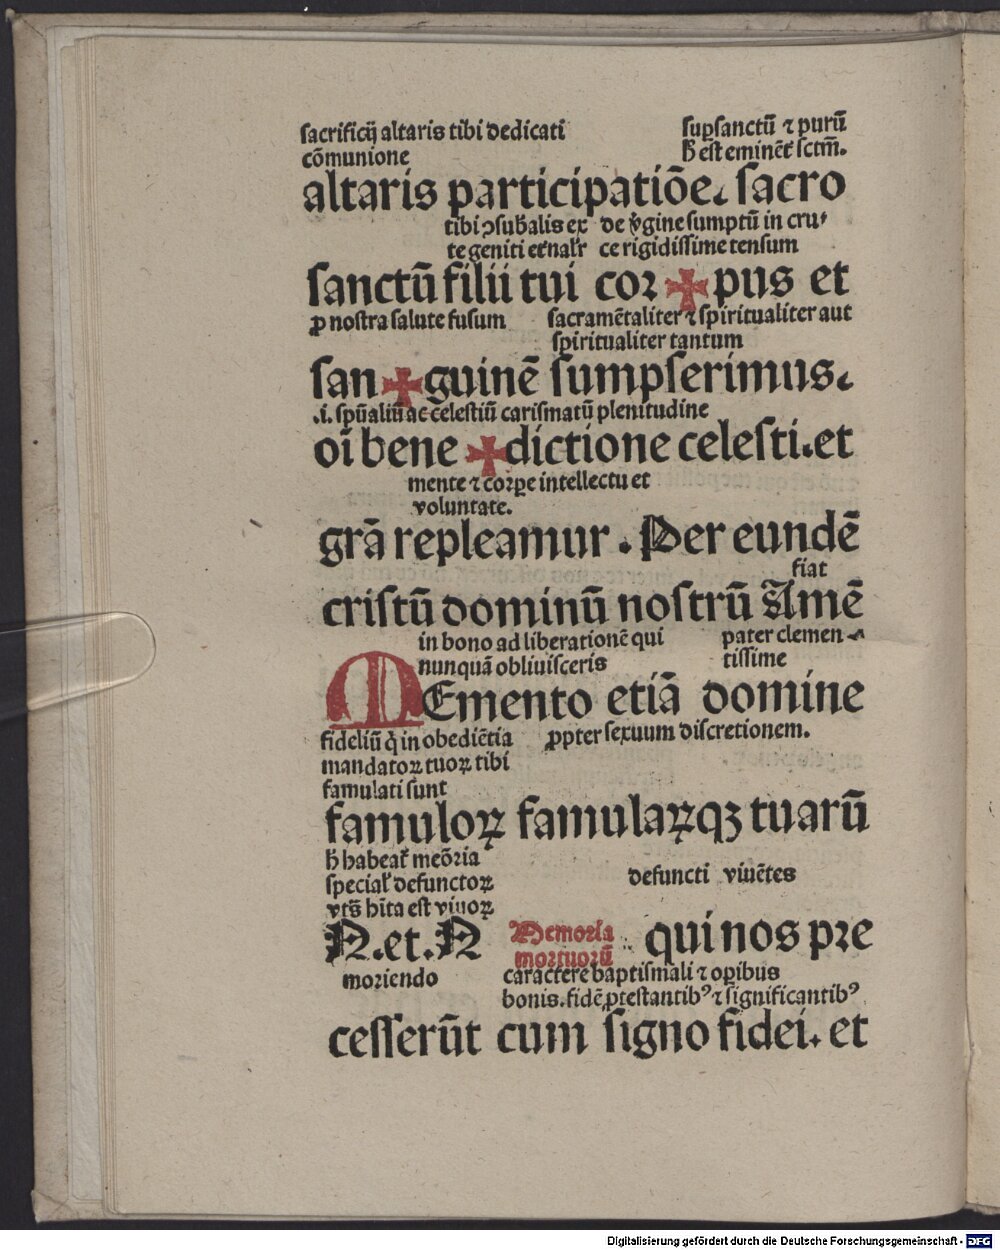 sacrificij altaris tibi dedicati sup̱sanctū ⁊ purū
cōmunione h̄ est eminēt̉ sctm̄.
altaris participatiōe. sacro
tibi ꝯsub̄alis ex de v̓gine sumptū in cru,
te geniti et̓nalr̄ ce rigidissime tensum
sanctū filii tui coꝛ ✠ pus et
ꝓ nostra salute fusum sacramētaliter ⁊ spiritualiter aut
spiritualiter tantum
san ✠ guinē sumpserimus.
.i. spūaliū ac celestiū carismatū plenitudine
oī bene ✠ dictione celesti. et
mente ⁊ coꝛꝑe intellectu et
voluntate.
grā repleamur. Per eundē
fiat
cristū dominū nostrū Amē
in bono ad liberationē qui pater clemen
nunquā obliuisceris tissime
MEmento etiā domine
fideliū q̇ in obediētia ꝓpter sexuum discretionem.
mandatoꝝ tuoꝝ tibi
famulati sunt
famuloꝝ famulaꝝqꝫ tuarū
h̄ habeat̉ meōria
special̓ defunctoꝝ defuncti viuētes
vts̄ hīta est viuoꝝ
N. et. N Memoria qui nos pꝛe
mortuorū
moꝛiendo caractere baptismali ⁊ oꝑibus
bonis. fidē ꝓtestantibꝰ ⁊ significantibꝰ
cesserūt cum signo fidei. et
Digitalisierung gefördert durch die Deutsche Forschungsgemeinschaft - DFG